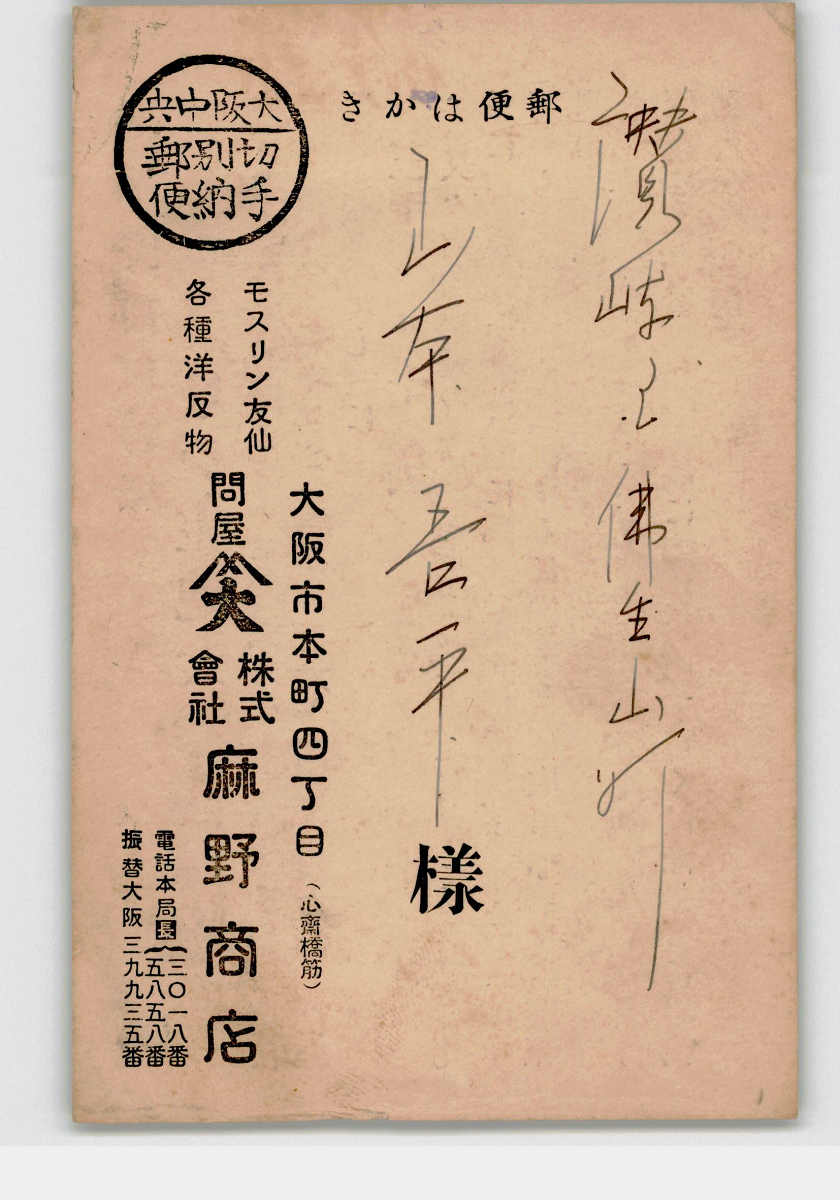 郵便はかき
大阪中央
切手
別納
郵便
讃岐国佛生山町
山本吾平
様
大阪市本町四丁目（心齋橋筋）
モスリン友仙
各種洋反物
問屋
大
株式
會社
麻野商店
電話本局長
三〇一八番
五八五八番
振替大阪三九九三五番